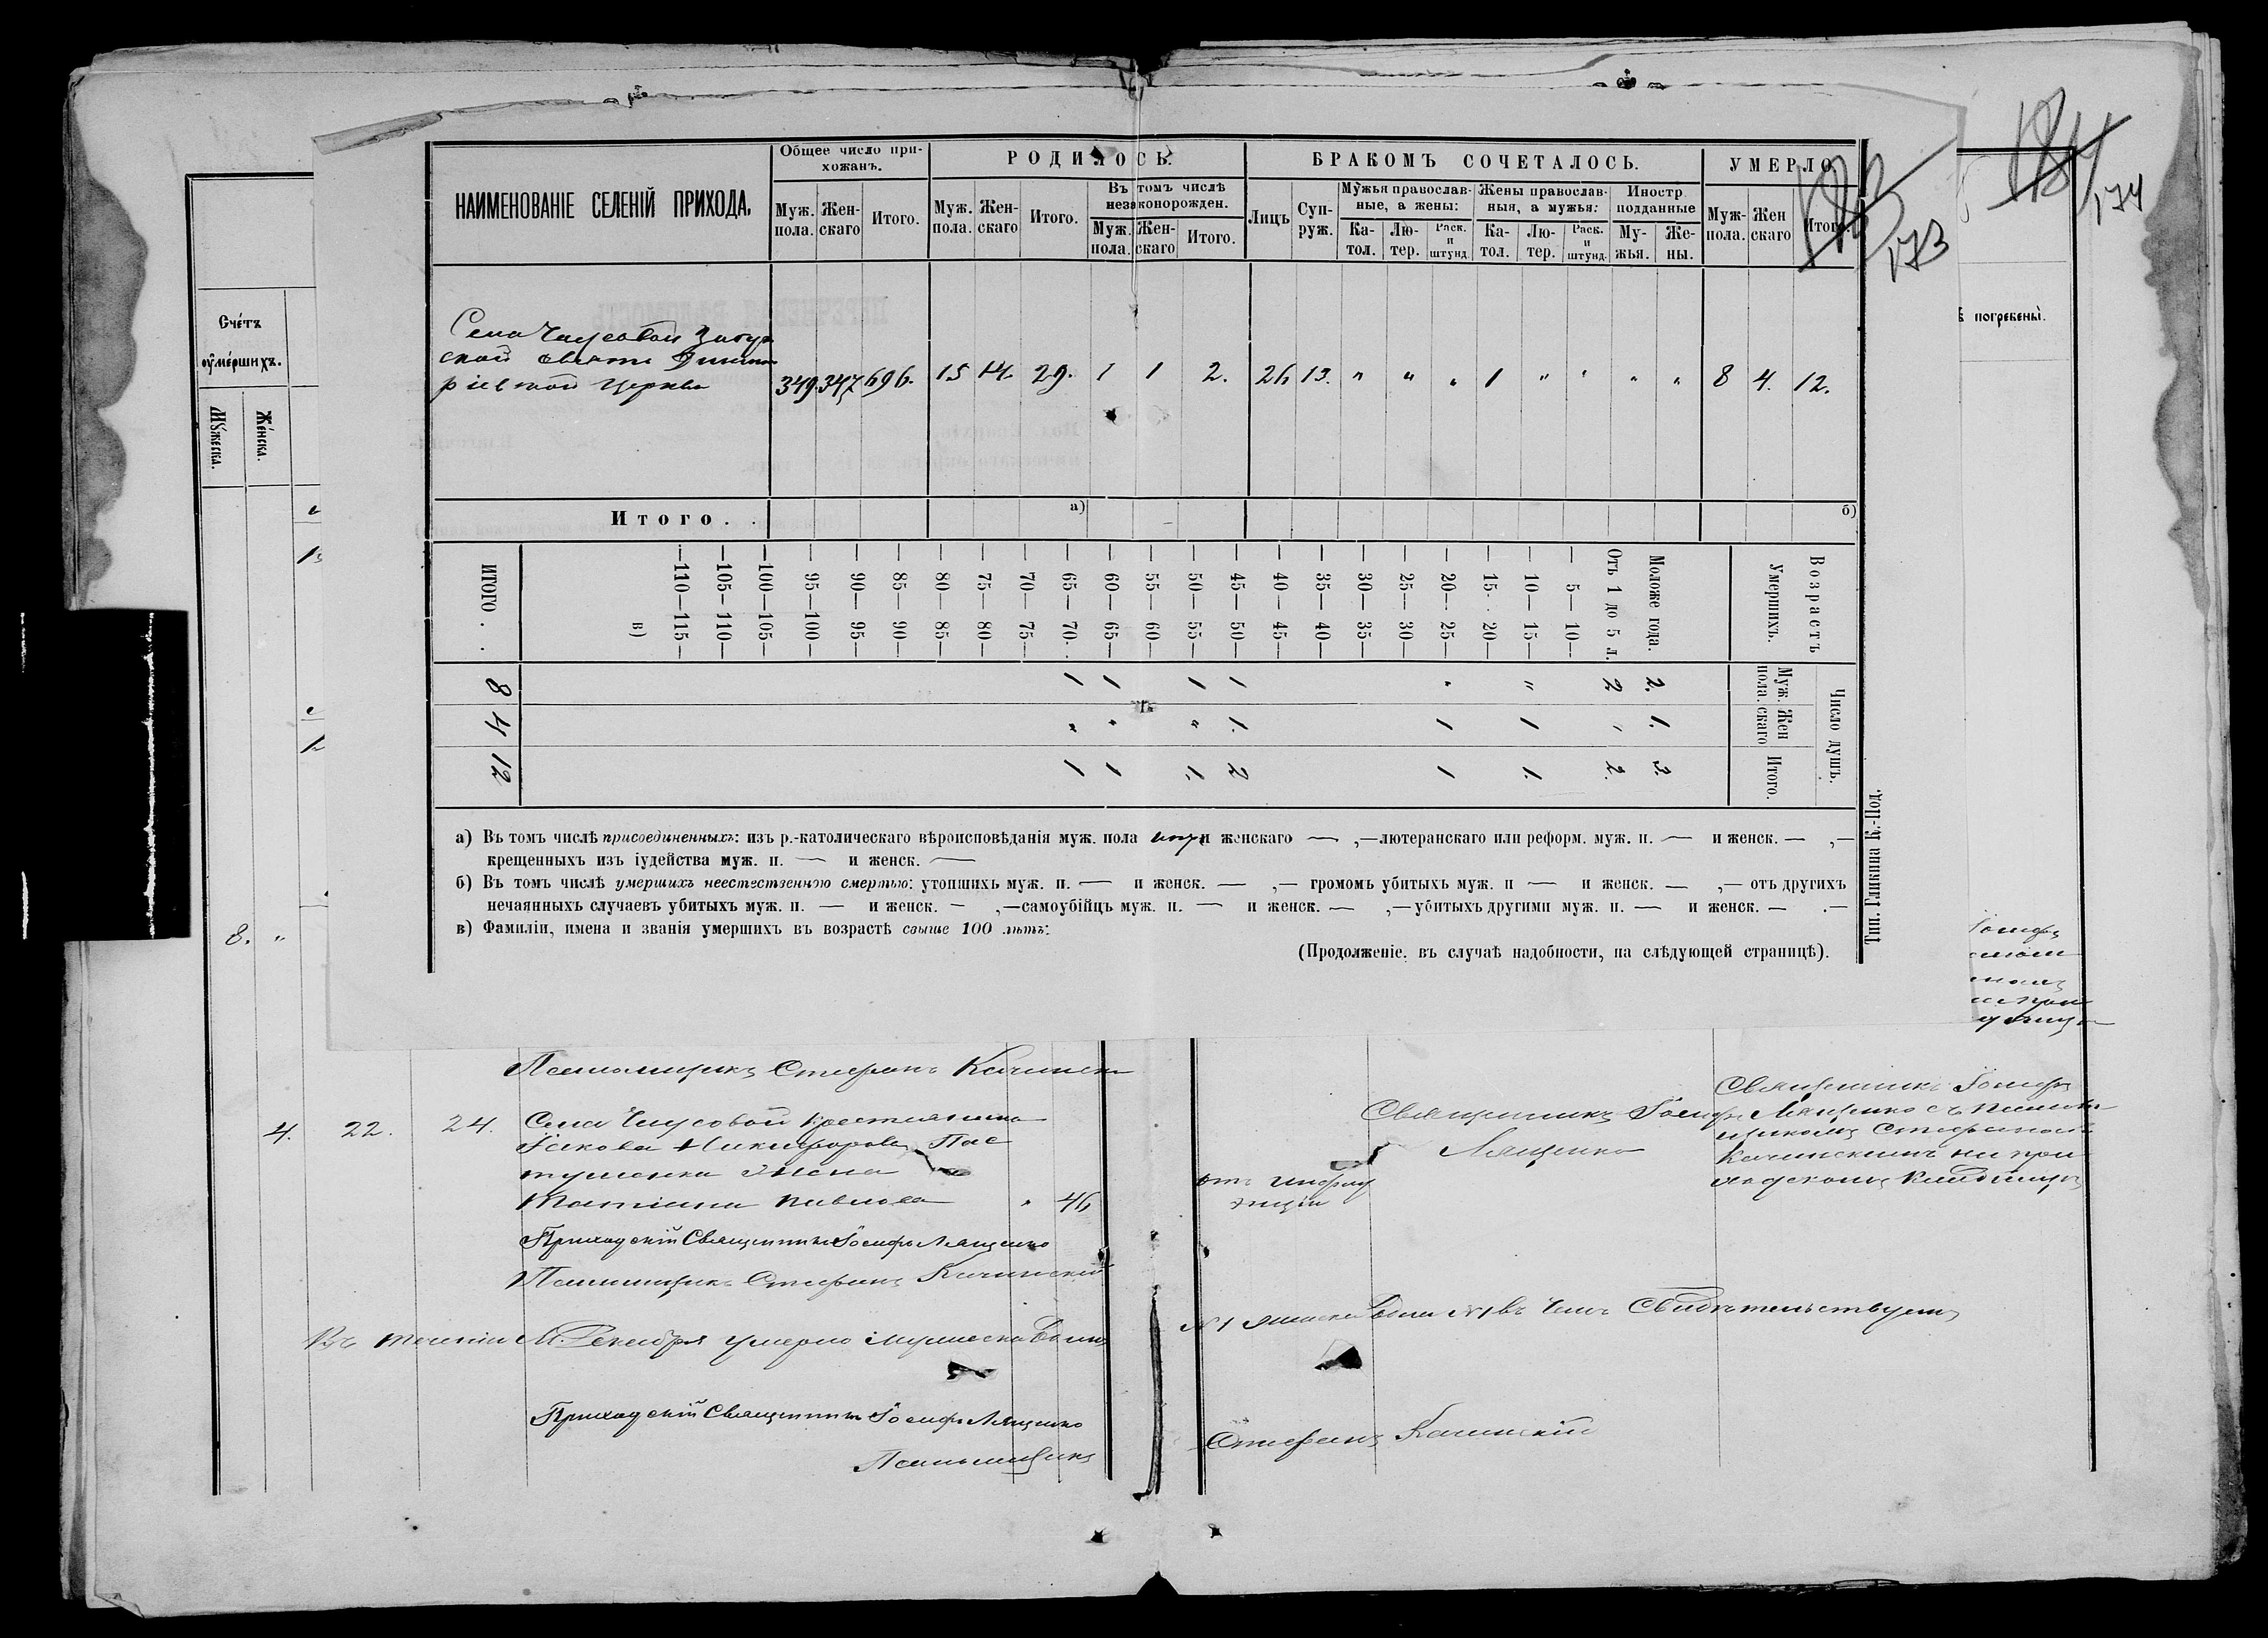 184
174
173
НАИМЕНОВАНІЕ СЕЛЕНІЙ ПРИХОДА.
Общее число при-
хожанъ.
Муж. пола.
Жен-
скаго
Итого.
РОДИЛОСЬ.
Муж. пола.
Жен-
скаго
Итого.
Въ томъ числѣ
незаконорожден.
Муж. пола.
Жен-
скаго
Итого.
БРАКОМЪ СОЧЕТАЛОСЬ.
Лицъ
Суп-
руж.
Мужья православ-
ные, а жены:
Ка-
тол.
Лю-
тер.
Раск.
и
штунд.
Жены православ-
ныя, а мужья:
Ка-
тол.
Лю-
тер.
Раск.
и
штунд.
Иностр.
подданные
Му-
жья.
Же-
ны.
УМЕРЛО
Муж-
пола.
Жен
скаго
Итого.
Села Чаусовой
ской Димит
ріевской Церкви
349. 347 696. 15 14. 29. 1 1 2. 26 13. " " " 1 " " " " 8 4. 12.
Итого. .
а)
б)
Возрастъ
Умершихъ.
Моложе года.
Отъ 1 до 5 л.
— 5—10—
— 10— 15—
— 15 . 20—
— 20— 25—
— 25— 30—
— 30— 35—
— 35— 40—
— 40— 45—
— 45— 50—
— 50— 55—
— 55— 60—
— 60— 65—
— 65— 70—
— 70— 75—
— 75— 80—
— 80— 85—
— 85— 90—
— 90— 95—
— 95—100—
—100—105—
—105—110—
—110—115—
в)
ИТОГО . .
Число душъ.
Муж. пола.
Жен
скаго
Итого.
2. 2 " " 1 1 1 1 8
1. " 1 1 1. " " " 4
3. 2. 1. 1 2 1. 1 1 12
а) Въ томъ числѣ присоединенныхъ: изъ р.-католическаго вѣроисповѣданія муж. пола и женскаго — ,—лютеранскаго или реформ. муж. п. — и женск. — ,—
крещенныхъ изъ іудейства муж. п. — и женск. —
б) Въ томъ числѣ умершихъ неестественною смертью: утопшихъ муж. п. — и женск. — ,— громомъ убитыхъ муж. п — и женск. — ,— отъ другихъ
нечаянныхъ случаевъ убитыхъ муж. п. — и женск. — ,—самоубійцъ муж. п. — и женск. — ,—убитыхъ другими муж. п. — и женск. — .—
в) Фамиліи, имена и званія умершихъ въ возрастѣ свыше 100 лѣтъ:
(Продолженіе. въ случаѣ надобности, на слѣдующей страницѣ).
Тип. Гликина К.-Под.
Счéтъ
оумéршихъ.
Мꙋжеска.
Жéнска.
погребены̀.
8. "
Псаломщикъ Стефанъ Качинскі
4. 22. 24. Села Чаусовой крестьянина
Іакова Никифорова Пас
тушенка жена
Татіана Павлова " 46
отъ инфлу
энціи
Священникъ Іосифъ
Лященко
Священникъ Іосифъ
Лященко съ псалом
щикомъ Стефаномъ
Качинскимъ на при
ходскомъ кладбищѣ
Приходскій Священникъ Іосифъ Лященко
Псаломщикъ Стефанъ Качинскій
Въ теченіи М. Декабря умерло мужеска пола №1 женска пола №1 въ чемъ Свидѣтельствуемъ
Приходскій Священникъ Іосифъ Лященко
Псаломщикъ Стефанъ Качинскій